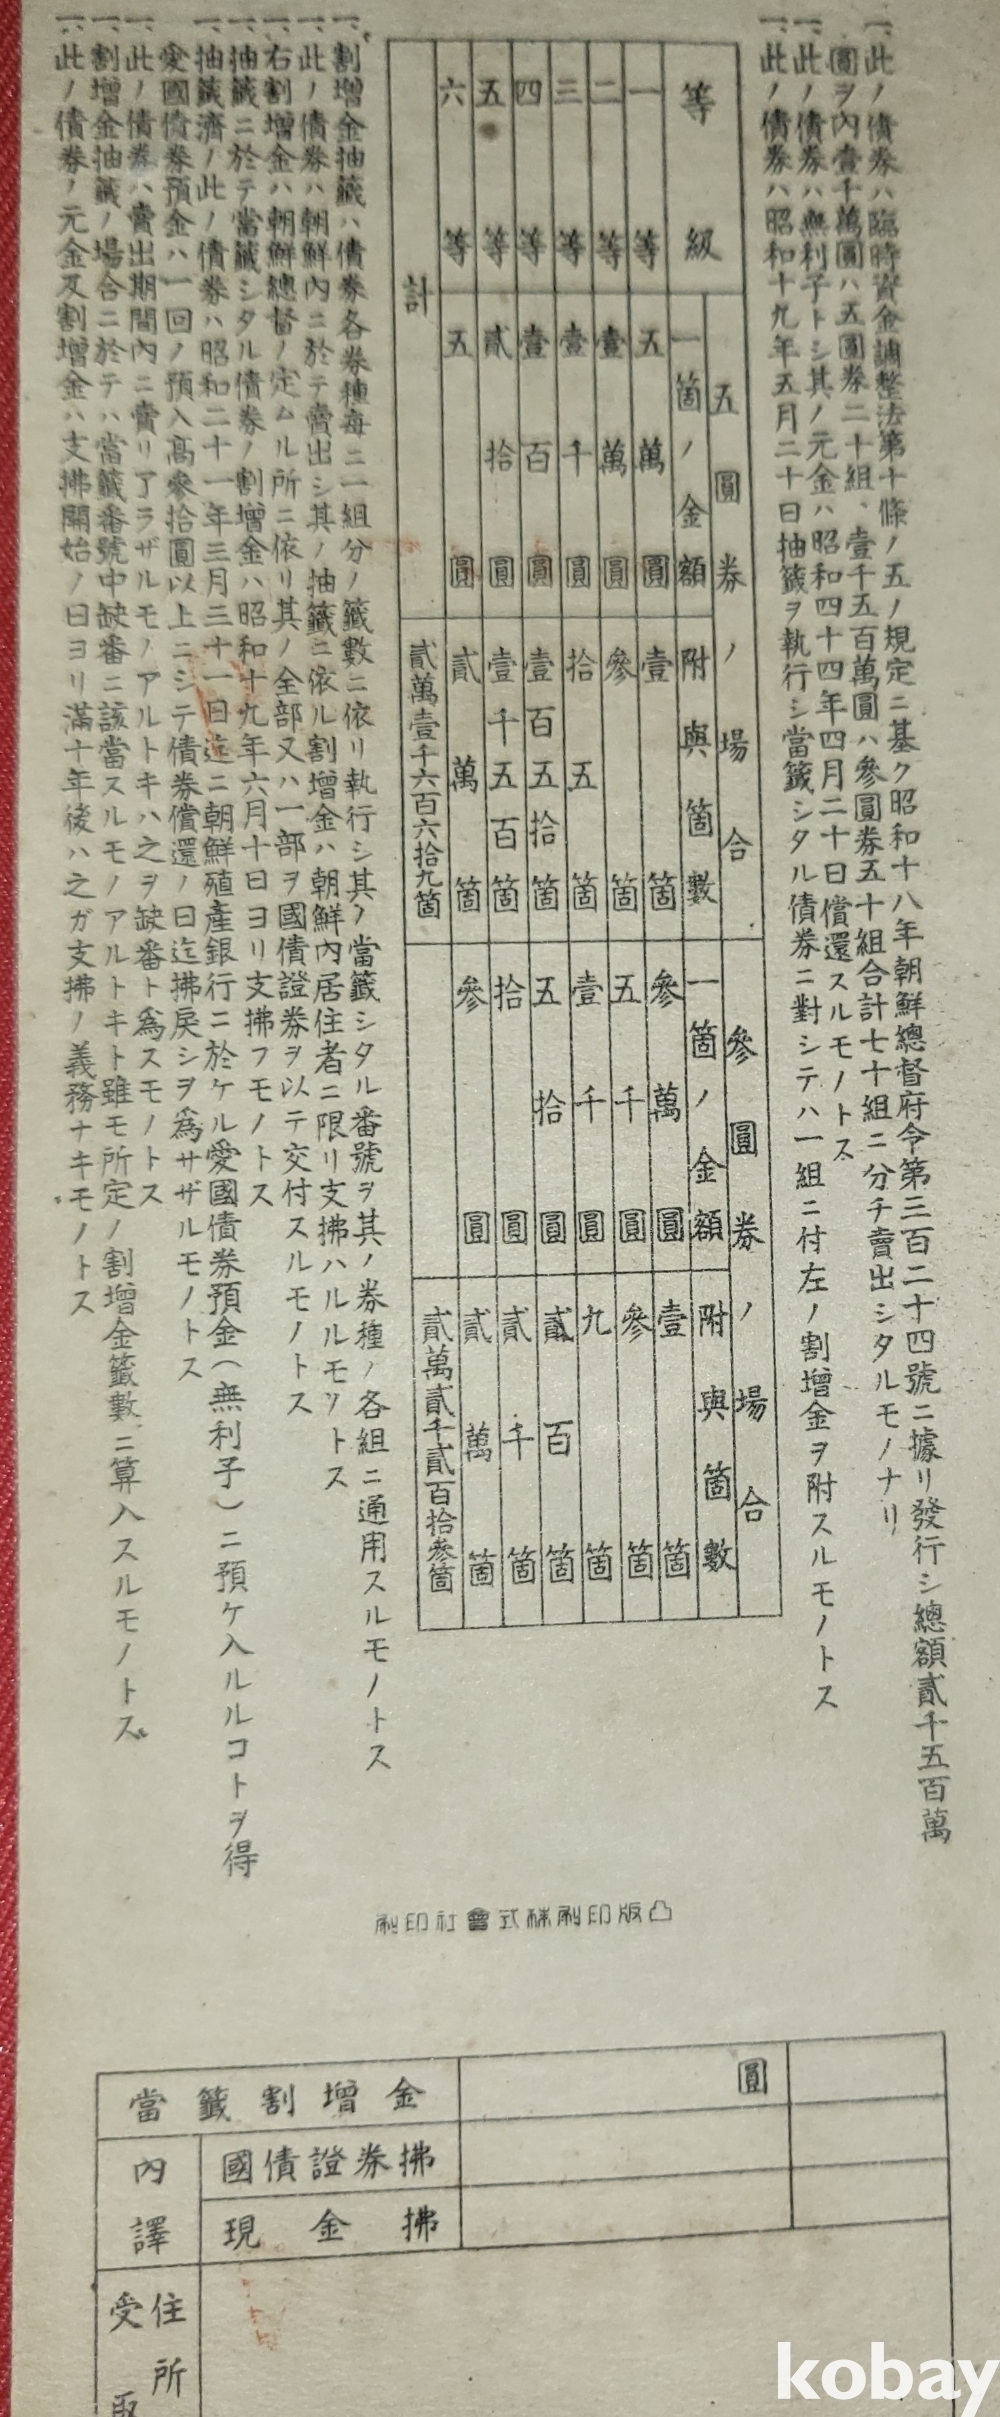 一、此ノ債券ハ臨時資金調整法第十條ノ五ノ規定ニ基ク昭和十八年朝鮮總督府令第三百二十四號ニ據リ發行シ總額貳千五百萬
圓ヲ內壹千萬圓ハ五圓券二十組、壹千五百萬圓ハ參圓券五十組合計七十組ニ分チ賣出シタルモノナリ
一、此ノ債券ハ無利子トシ其ノ元金ハ昭和四十四年四月二十日償還スルモノトス
一、此ノ債券ハ昭和十九年五月二十日抽籤ヲ執行シ當籤シタル債券ニ對シテハ一組ニ付左ノ割增金ヲ附スルモノトス
五圓券ノ場合 參圓券ノ場合
等級 一箇ノ金額 附與箇數 一箇ノ金額 附與箇數
一等 五萬圓 壹箇 參萬圓 壹箇
二等 壹萬圓 參箇 五千圓 參箇
三等 壹千圓 拾五箇 壹千圓 九箇
四等 壹百圓 壹百五拾箇 五拾圓 貳百箇
五等 貳拾圓 壹千五百箇 拾圓 貳千箇
六等 五圓 貳萬箇 參圓 貳萬箇
計 貳萬壹千六百六拾九箇 貳萬貳千貳百拾參箇
一、割增金抽籤ハ債券各券種每ニ一組分ノ籤數ニ依リ執行シ其ノ當籤シタル番號ヲ其ノ券種ノ各組ニ通用スルモノトス
一、此ノ債券ハ朝鮮內ニ於テ賣出シ其ノ抽籤ニ依ル割增金ハ朝鮮內居住者ニ限リ支拂ハルルモノトス
一、右割增金ハ朝鮮總督ノ定ムル所ニ依リ其ノ全部又ハ一部ヲ國債證券ヲ以テ交付スルモノトス
一、抽籤ニ於テ當籤シタル債券ノ割增金ハ昭和十九年六月十日ヨリ支拂フモノトス
一、抽籤濟ノ此ノ債券ハ昭和二十一年三月三十一日迄ニ朝鮮殖產銀行ニ於ケル愛國債券預金(無利子)ニ預ケ入ルルコトヲ得
愛國債券預金ハ一回ノ預入高參拾圓以上ニシテ債券償還ノ日迄拂戾シヲ爲サザルモノトス
一、此ノ債券ハ賣出期間內ニ賣リ了ラザルモノアルトキハ之ヲ缺番ト爲スモノトス
一、割增金抽籤ノ場合ニ於テハ當籤番號中缺番ニ該當スルモノアルトキト雖モ所定ノ割增金籤數ニ算入スルモノトス
一、此ノ債券ノ元金及割增金ハ支拂開始ノ日ヨリ滿十年後ハ之ガ支拂ノ義務ナキモノトス
刷印社會式株刷印版凸
當籤割增金 圓
內譯 國債證券拂
現金拂
住所
受取
kobay